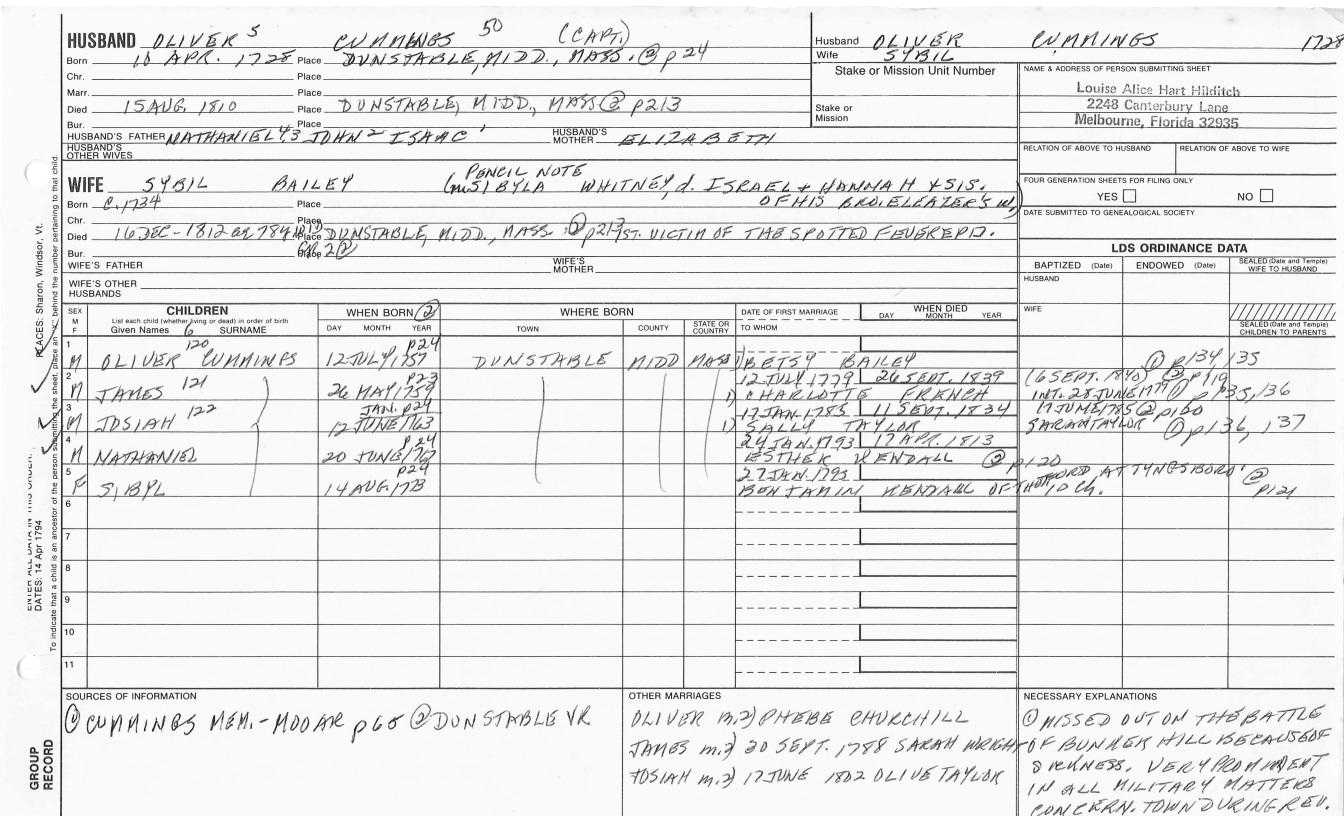 HUSBAND OLIVER 5 CUMMINGS 50 (CAPT.)
Born 10 APR. 1728 Place DUNSTABLE, MIDD., MASS. ② p24
Chr. Place
Marr. Place
Died 15 AUG. 1810 Place DUNSTABLE, MIDD., MASS ② p213
Bur. Place
HUSBAND'S FATHER NATHANIEL 4 3 JOHN 2 ISAAC 1 HUSBAND'S MOTHER ELIZABETH
HUSBAND'S OTHER WIVES
Husband OLIVER CUMMINGS 1728
Wife SYBIL
Stake or Mission Unit Number
Stake or Mission
NAME & ADDRESS OF PERSON SUBMITTING SHEET
Louise Alice Hart Hilditch
2248 Canterbury Lane
Melbourne, Florida 32935
RELATION OF ABOVE TO HUSBAND RELATION OF ABOVE TO WIFE
FOUR GENERATION SHEETS FOR FILING ONLY
YES NO
DATE SUBMITTED TO GENEALOGICAL SOCIETY
PENCIL NOTE
WIFE SYBIL BAILEY (m SIBYLA WHITNEY, d. ISRAEL + HANNAH + SIS.
OF HIS BRO. ELEAZER'S W.)
Born C. 1734 Place
Chr. Place
Died 16 DEC - 1812 Place DUNSTABLE, MIDD., MASS. ② p213 1ST. VICTIM OF THE SPOTTED FEVER EPID.
Bur. Place
WIFE'S FATHER WIFE'S MOTHER
WIFE'S OTHER HUSBANDS
LDS ORDINANCE DATA
BAPTIZED (Date) ENDOWED (Date) SEALED (Date and Temple) WIFE TO HUSBAND
HUSBAND
WIFE
SEALED (Date and Temple) CHILDREN TO PARENTS
SEX M F
CHILDREN
List each child (whether living or dead) in order of birth
Given Names SURNAME
WHEN BORN ②
DAY MONTH YEAR
WHERE BORN
TOWN COUNTY STATE OR COUNTRY
DATE OF FIRST MARRIAGE
TO WHOM
WHEN DIED
DAY MONTH YEAR
1 M OLIVER CUMMINGS 120 12 JULY, 1757 p24 DUNSTABLE MIDD MASS 1) BETSY BAILEY ① p134, 135
2 M JAMES 121 26 MAY 1759 p23 12 JULY 1779 26 SEPT. 1839 (6 SEPT. 1840) ② p119
1) CHARLOTTE FRENCH INT. 28 JUNE 1777 ① p135, 136
3 M JOSIAH 122 12 JUNE 1763 JAN. p24 17 JAN. 1785 11 SEPT. 1834 17 JUNE 1785 ② p120
1) SALLY TAYLOR SARAH TAYLOR ① p136, 137
4 M NATHANIEL 20 JUNE p24 24 JAN. 1793 17 APR. 1813
ESTHER KENDALL ② p120
5 F SIBYL 14 AUG. p24 27 JAN. 1795
BENJAMIN KENDALL ATTYNGSBORO' ② p121
6
7
8
9
10
11
SOURCES OF INFORMATION
① CUMMINGS MEM. - MOOAR p60 ② DUNSTABLE VR
OTHER MARRIAGES
OLIVER m. 2) PHEBE CHURCHILL
JAMES m. 2) 20 SEPT. 1788 SARAH WRIGHT
JOSIAH m. 2) 17 JUNE 1802 OLIVE TAYLOR
NECESSARY EXPLANATIONS
① MISSED OUT ON THE BATTLE
OF BUNKER HILL BECAUSE OF
SICKNESS. VERY PROMINENT
IN ALL MILITARY MATTERS
CONCERN. TOWN DURING REV.
PLACES: Sharon, Windsor, Vt.
ENTER ALL DATA IN THIS ORDER:
DATES: 14 Apr 1794
To indicate that a child is an ancestor of the person submitting the sheet, place an "X" behind the number pertaining to that child.
GROUP RECORD